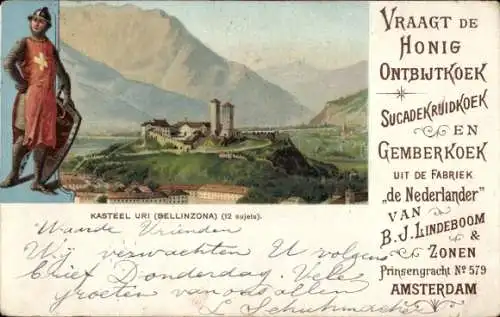 VRAAGT DE
HONIG
ONTBIJTKOEK
SUCADEKRUIDKOEK
EN
GEMBERKOEK
UIT DE FABRIEK
„de Nederlander"
VAN
B.J. LINDEBOOM
&
ZONEN
Prinsengracht No 579
AMSTERDAM
KASTEEL URI (BELLINZONA) (12 sujets).
Waarde Vrienden
Wij verwachten U volgens
brief Donderdag. Vele
groeten van ons allen